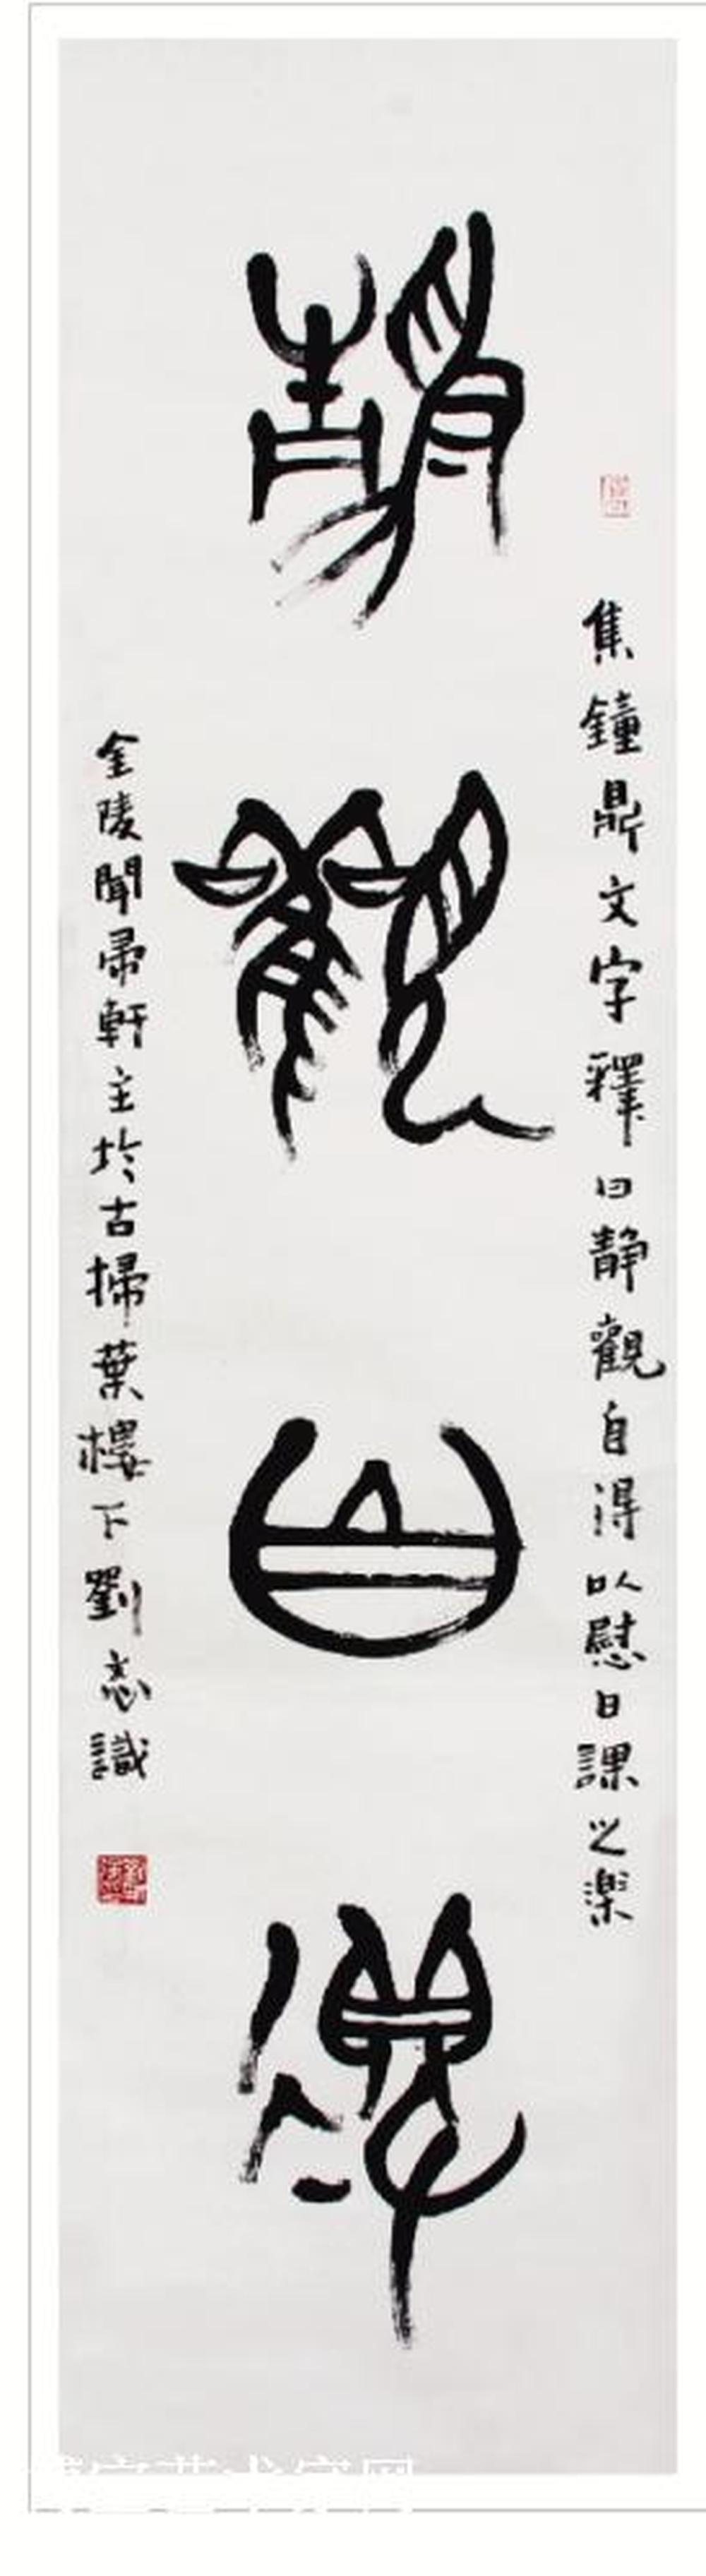 集鐘鼎文字釋曰静觀自得以慰日課之楽
静觀自得
金陵聞帚軒主於古掃葉樓下劉志識